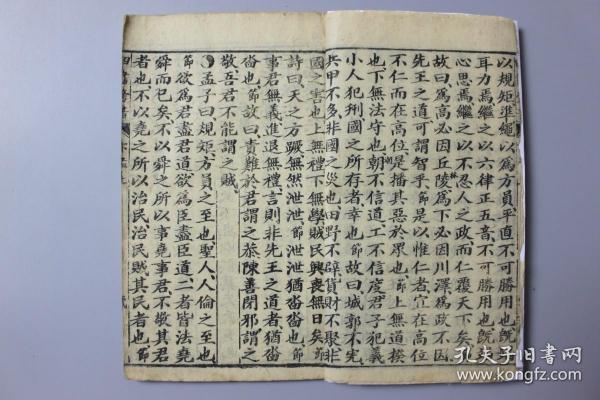 以規矩準繩以爲方員平直不可勝用也既
耳力焉繼之以六律正五音不可勝用也既
心思焉繼之以不忍人之政而仁覆天下矣
故曰爲高必因丘陵爲下必因川澤爲政不因
先王之道可謂智乎節是以惟仁者宜在高位
不仁而在高位是播其惡於眾也節上無道揆
也下無法守也朝不信道工不信度君子犯義
小人犯刑國之所存者幸也節故曰城郭不完
兵甲不多非國之災也田野不辟貨財不聚非
國之害也上無禮下無學賊民興喪無日矣節
詩曰天之方蹶無然泄泄節泄泄猶沓沓也節
事君無義進退無禮言則非先王之道者猶沓
沓也節故曰責難於君謂之恭陳善閉邪謂之
敬吾君不能謂之賊
孟子曰規矩方員之至也聖人人倫之至也
節欲爲君盡君道欲爲臣盡臣道二者皆法堯
舜而已矣不以舜之所以事堯事君不敬其君
者也不以堯之所以治民治民賊其民者也節
孔夫子旧书网
www.kongfz.com